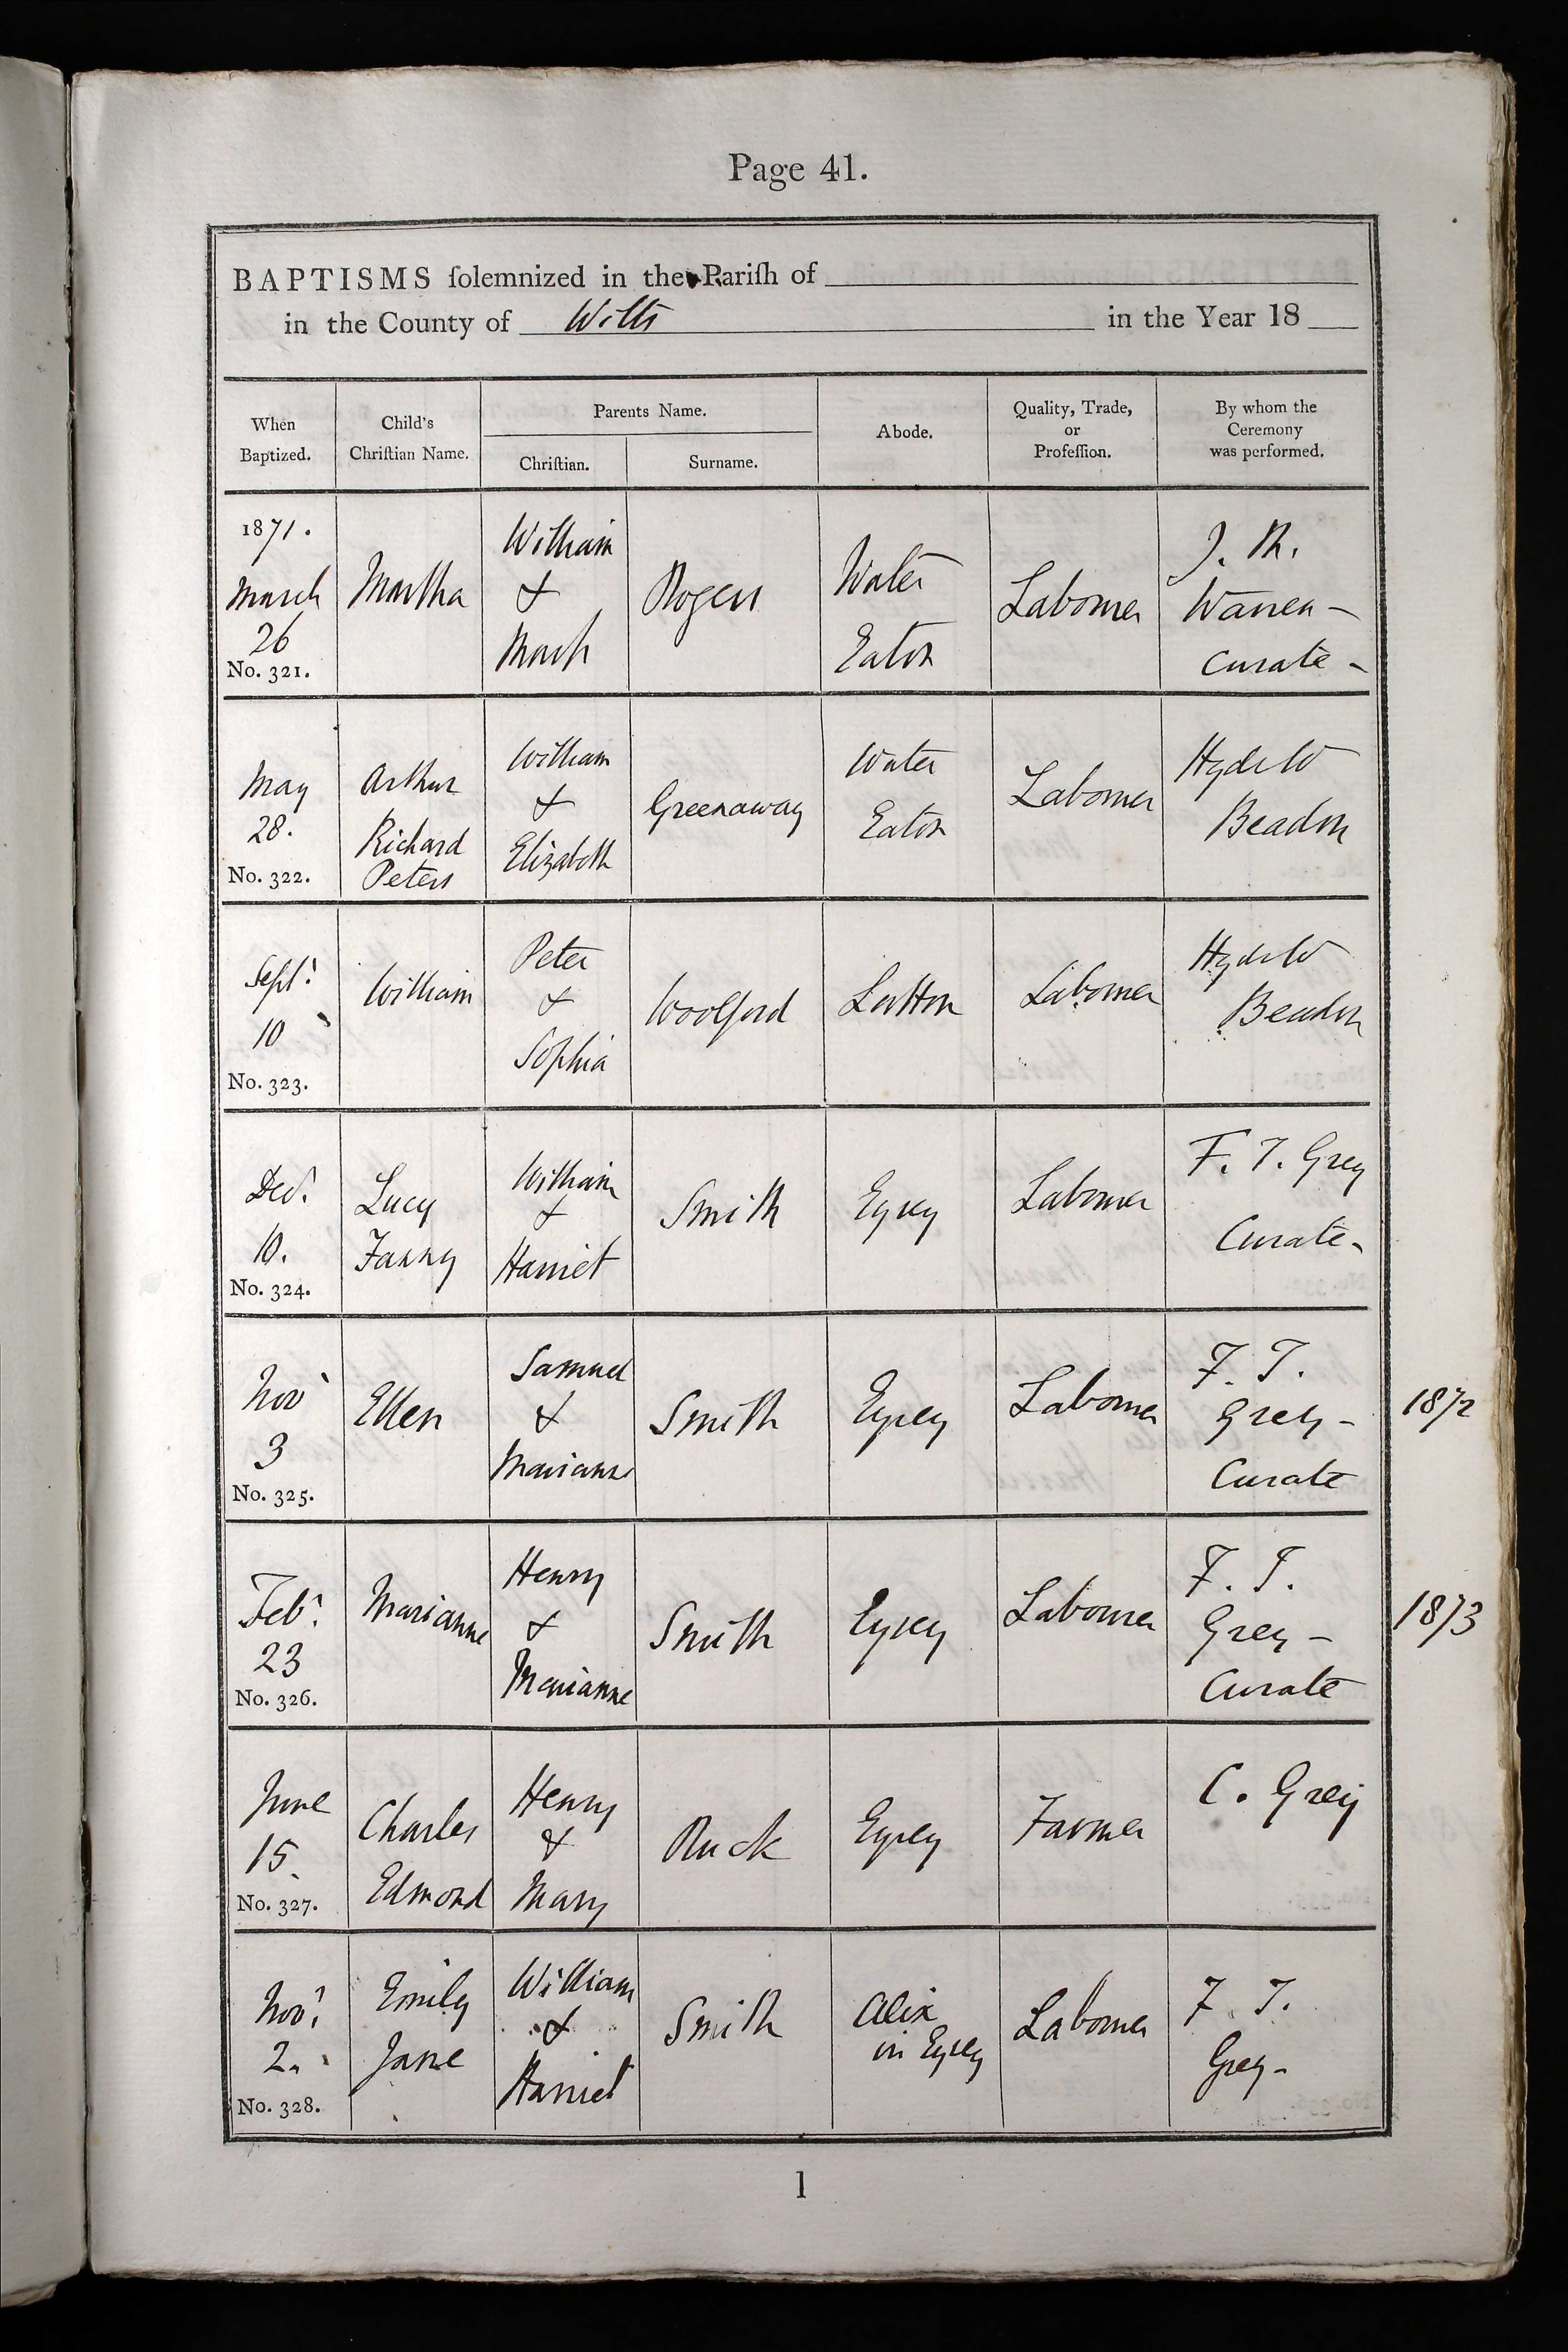 Page 41.
BAPTISMS ſolemnized in the Pariſh of
in the County of Wilts in the Year 18
When
Baptized.
Child's
Chriſtian Name.
Parents Name.
Chriſtian.
Surname.
Abode.
Quality, Trade,
or
Profeſſion.
By whom the
Ceremony
was performed.
1871.
March
26
No. 321.
Martha
William
&
Rogers
Water
Eaton
Labourer
Warren -
Curate -
May
28.
No. 322.
Arthur
Richard
Peters
William
&
Elizabeth
Greenaway
Water
Eaton
Labourer
Hyde W
Beadon
Sept.
10
No. 323.
William
Peter
&
Sophia
Woolford
Latton
Labourer
Hyde W
Beadon
Decr.
10.
No. 324.
Lucy
Fanny
William
&
Harriet
Smith
Eysey
Labourer
F. T. Grey
Curate -
Nov
3
No. 325.
Ellen
Samuel
&
Marianne
Smith
Eysey
Labourer
F. T.
Grey -
Curate
1872
Feb.
23
No. 326.
Marianne
Henry
&
Marianne
Smith
Eysey
Labourer
F. T.
Grey -
Curate
1873
June
15.
No. 327.
Charles
Edmond
Henry
&
Mary
Ruck
Eysey
Farmer
C. Grey
Nov.
2.
No. 328.
Emily
Jane
William
&
Harriet
Smith
in Eysey
Labourer
F. T.
Grey -
l